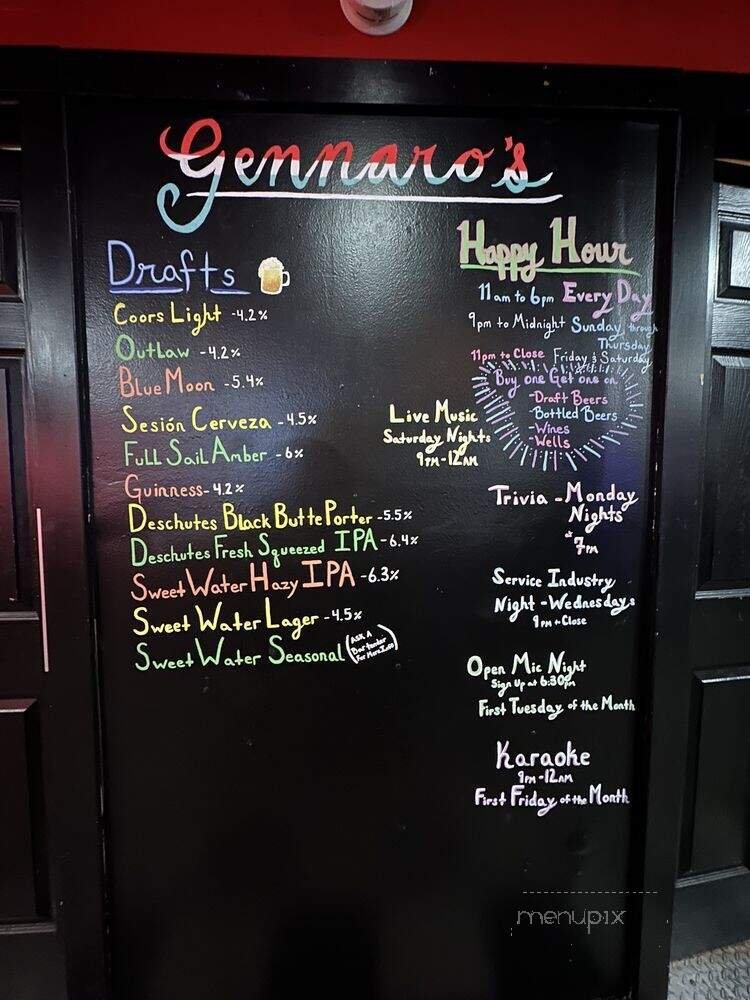 Gennaro's
Drafts
Coors Light - 4.2%
Outlaw - 4.2%
Blue Moon - 5.4%
Sesión Cerveza - 4.5%
Full Sail Amber - 6%
Guinness - 4.2%
Deschutes Black Butte Porter - 5.5%
Deschutes Fresh Squeezed IPA - 6.4%
Sweet Water Hazy IPA - 6.3%
Sweet Water Lager - 4.5%
Sweet Water Seasonal (Ask A
Bartender
For More Info)
Happy Hour
11am to 6pm Every Day
9pm to Midnight Sunday through
Thursday
11pm to Close Friday & Saturday
Buy one Get one on
- Draft Beers
- Bottled Beers
- Wines
- Wells
Live Music
Saturday Nights
9pm - 12am
Trivia - Monday
Nights
7pm
Service Industry
Night - Wednesdays
9pm - Close
Open Mic Night
Sign up at 6:30pm
First Tuesday of the Month
Karaoke
9pm - 12am
First Friday of the Month
menupix